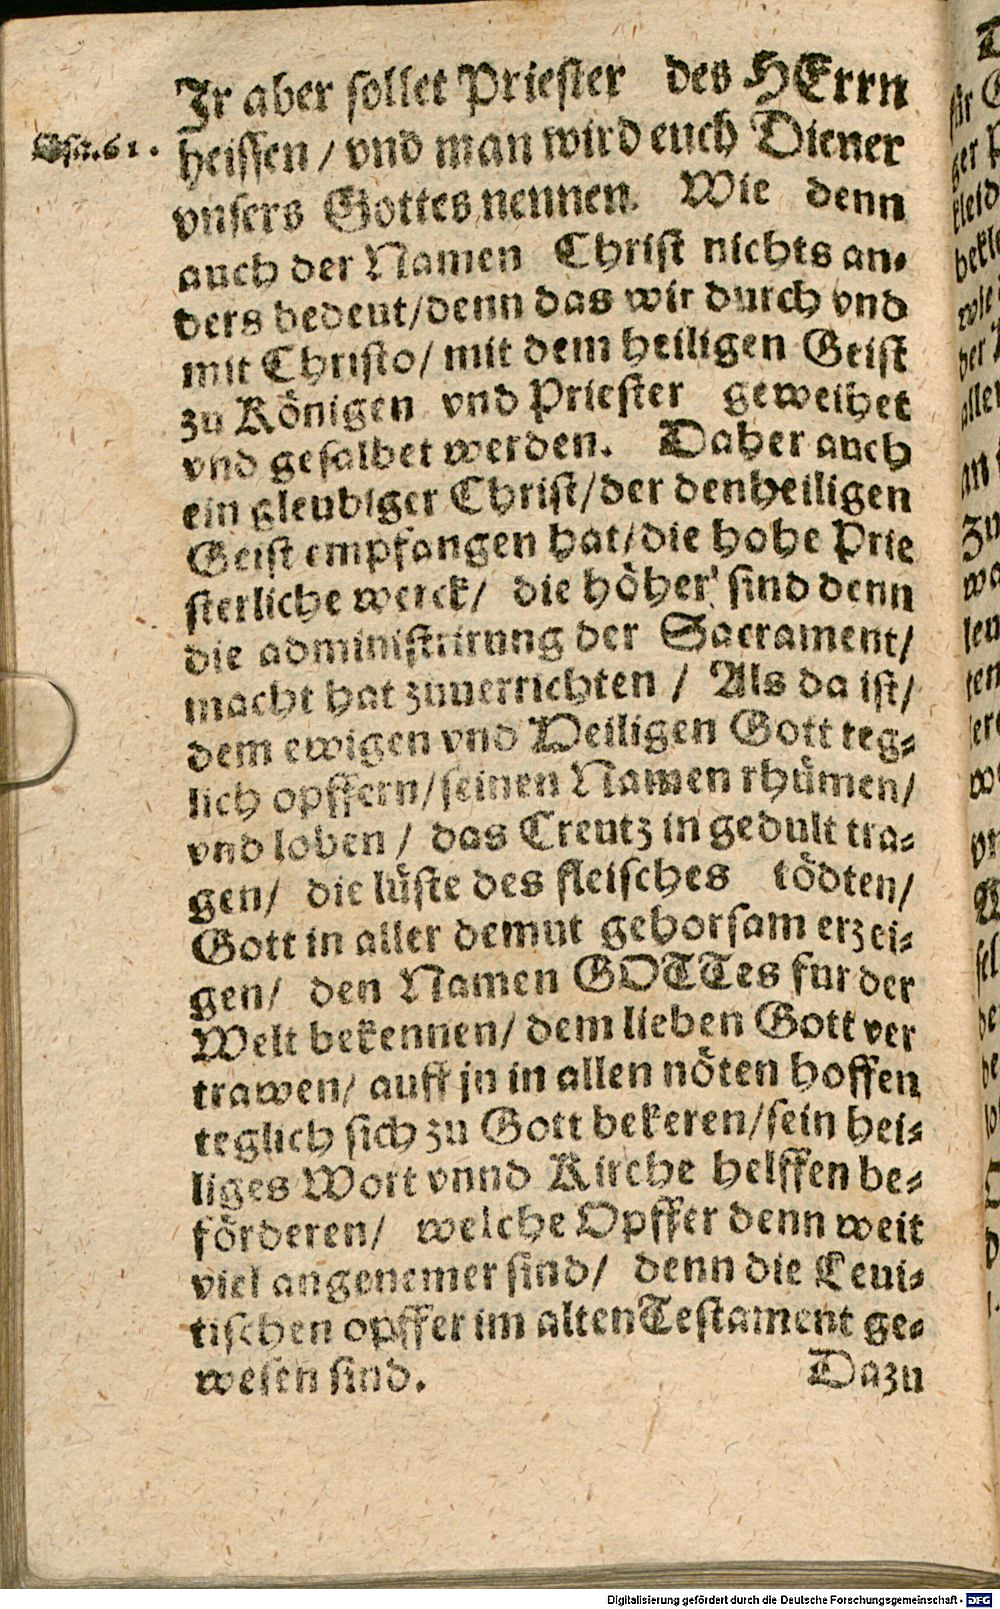 Jr aber sollet Priester des HErrn
heissen / vnd man wird euch Diener
Esa. 61.
vnsers Gottes nennen. Wie denn
auch der Namen Christ nichts an-
ders bedeut/denn das wir durch vnd
mit Christo/ mit dem heiligen Geist
zu Königen vnd Priester geweihet
vnd gesalbet werden. Daher auch
ein gleubiger Christ/der den heiligen
Geist empfangen hat/die hohe Prie
sterliche werck/ die höher sind denn
die administrirung der Sacrament/
macht hat zuuerrichten / Als da ist/
dem ewigen vnd Heiligen Gott teg-
lich opffern/seinen Namen rhümen/
vnd loben / das Creutz in gedult tra-
gen/ die lüste des fleisches tödten/
Gott in aller demut gehorsam erzei-
gen/ den Namen GOTTes fur der
Welt bekennen/ dem lieben Gott ver
trawen/ auff jn in allen nöten hoffen
teglich sich zu Gott bekeren/sein hei-
liges Wort vnnd Kirche helffen be-
förderen/ welche Opffer denn weit
viel angenemer sind/ denn die Leui-
tischen opffer im alten Testament ge-
wesen sind.
Dazu
Digitalisierung gefördert durch die Deutsche Forschungsgemeinschaft - DFG